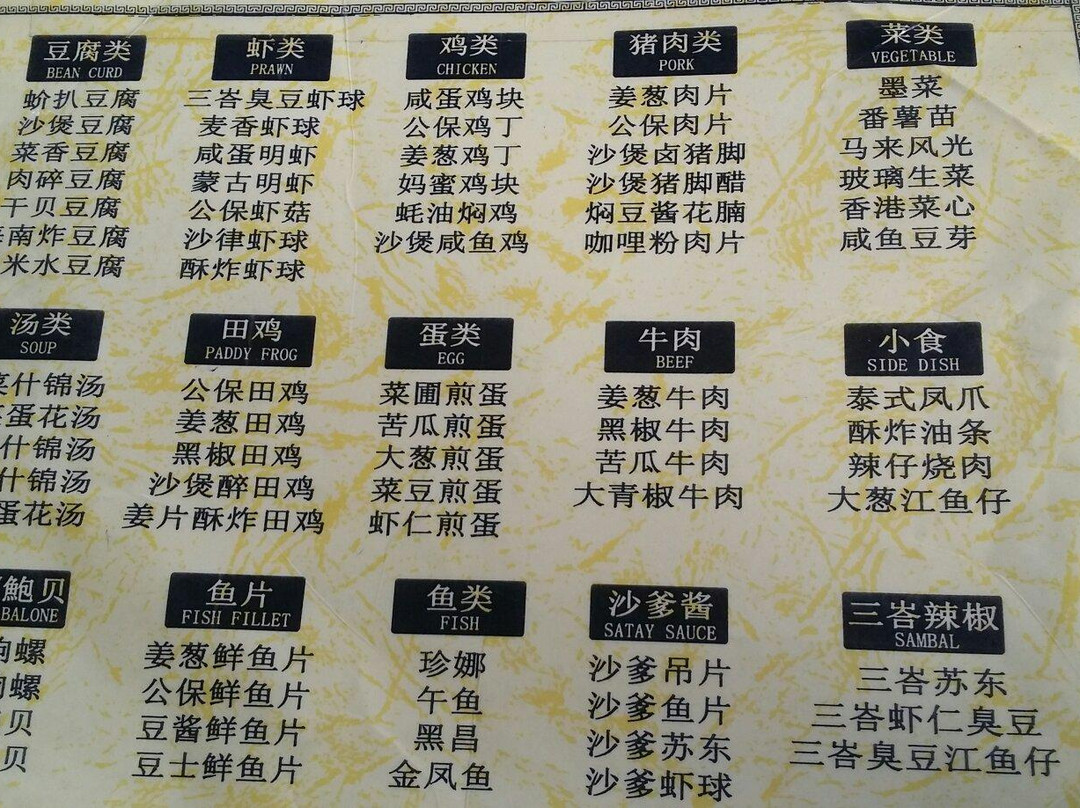 豆腐类
BEAN CURD
蚧扒豆腐
沙煲豆腐
菜香豆腐
肉碎豆腐
干贝豆腐
南炸豆腐
米水豆腐
虾类
PRAWN
三峇臭豆虾球
麦香虾球
咸蛋明虾
蒙古明虾
公保虾菇
沙律虾球
酥炸虾球
鸡类
CHICKEN
咸蛋鸡块
公保鸡丁
姜葱鸡丁
妈蜜鸡块
蚝油焖鸡
沙煲咸鱼鸡
猪肉类
PORK
姜葱肉片
公保肉片
沙煲卤猪脚
沙煲猪脚醋
焖豆酱花腩
咖哩粉肉片
菜类
VEGETABLE
墨菜
番薯苗
马来风光
玻璃生菜
香港菜心
咸鱼豆芽
汤类
SOUP
菜什锦汤
蛋花汤
什锦汤
什锦汤
蛋花汤
田鸡
PADDY FROG
公保田鸡
姜葱田鸡
黑椒田鸡
沙煲醉田鸡
姜片酥炸田鸡
蛋类
EGG
菜圃煎蛋
苦瓜煎蛋
大葱煎蛋
菜豆煎蛋
虾仁煎蛋
牛肉
BEEF
姜葱牛肉
黑椒牛肉
苦瓜牛肉
大青椒牛肉
小食
SIDE DISH
泰式凤爪
酥炸油条
辣仔烧肉
大葱江鱼仔
鮑贝
BALONE
螺
螺
贝
贝
鱼片
FISH FILLET
姜葱鲜鱼片
公保鲜鱼片
豆酱鲜鱼片
豆士鲜鱼片
鱼类
FISH
珍娜
午鱼
黑昌
金凤鱼
沙爹酱
SATAY SAUCE
沙爹吊片
沙爹鱼片
沙爹苏东
沙爹虾球
三峇辣椒
SAMBAL
三峇苏东
三峇虾仁臭豆
三峇臭豆江鱼仔